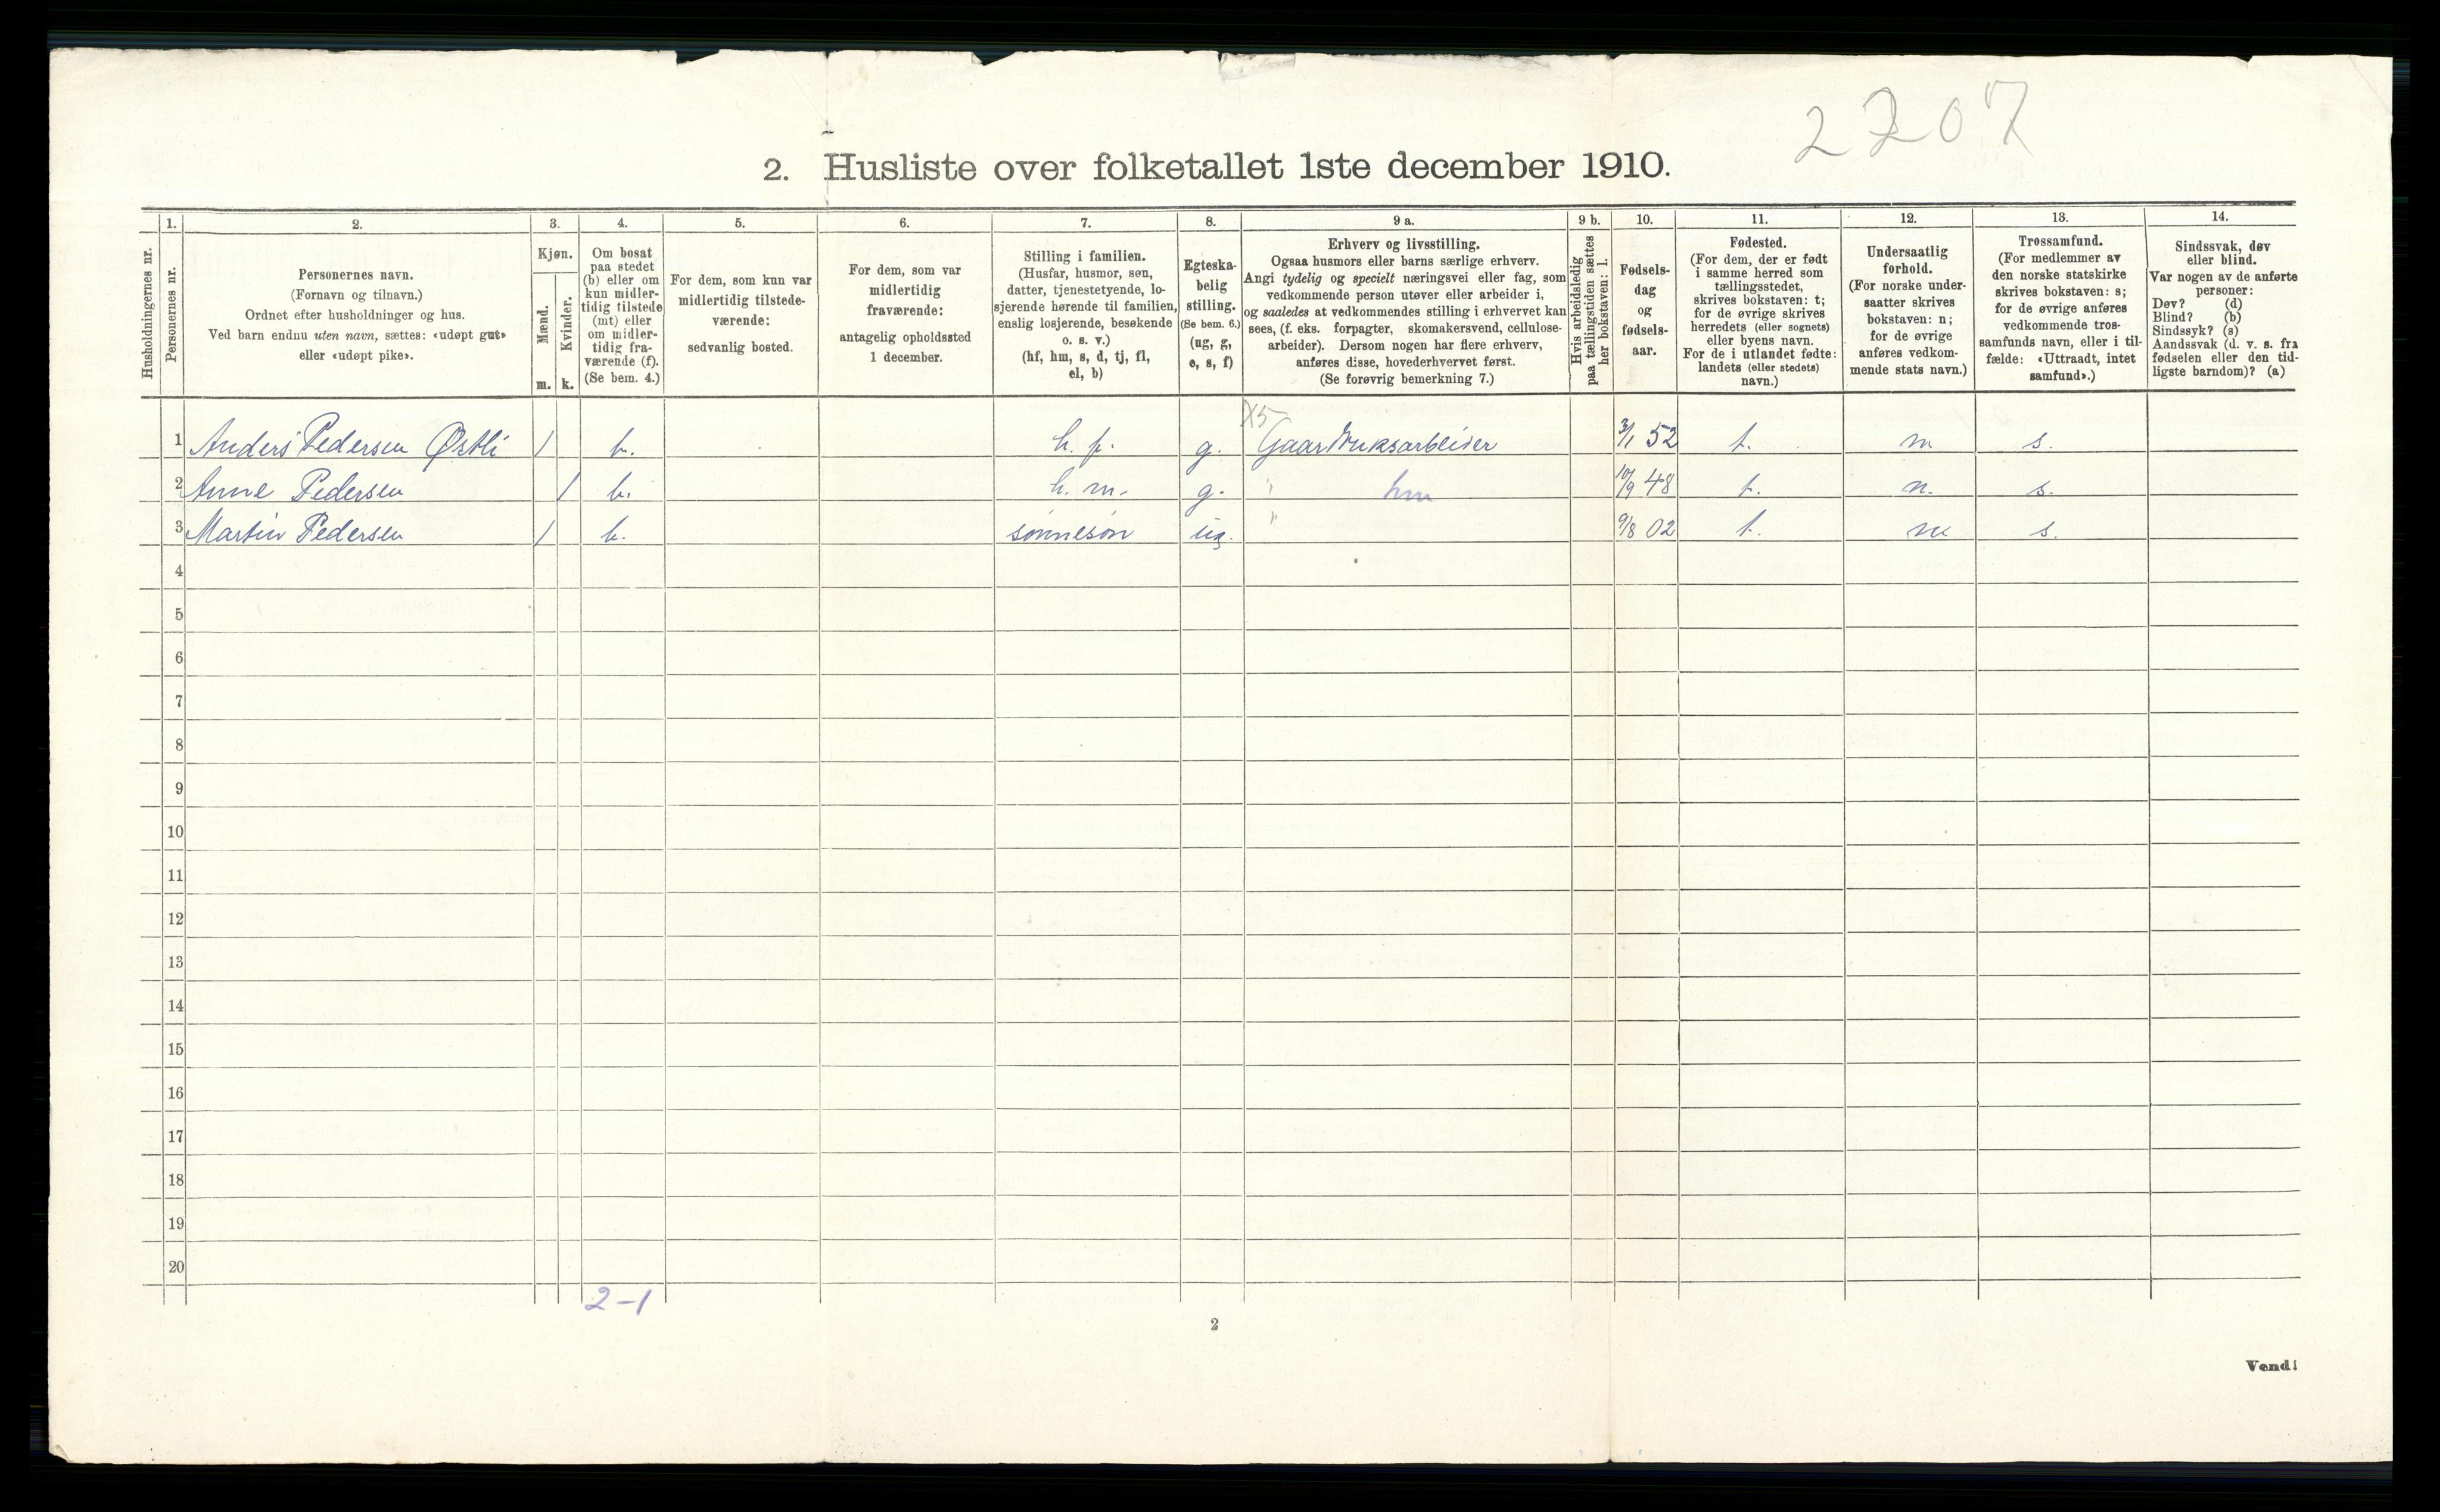 2207
2. Husliste over folketallet 1ste december 1910.
Husholdningernes nr.
1.
Personernes nr.
2.
Personernes navn.
(Fornavn og tilnavn.)
Ordnet efter husholdninger og hus.
Ved barn endnu uten navn, sættes: «udøpt gut»
eller «udøpt pike».
3.
Kjøn.
Mænd.
m.
Kvinder.
k.
4.
Om bosat
paa stedet
(b) eller om
kun midler-
tidig tilstede
(mt) eller
om midler-
tidig fra-
værende (f).
(Se bem. 4.)
5.
For dem, som kun var
midlertidig tilstede-
værende:
sedvanlig bosted.
6.
For dem, som var
midlertidig
fraværende:
antagelig opholdssted
1 december.
7.
Stilling i familien.
(Husfar, husmor, søn,
datter, tjenestetyende, lo-
sjerende hørende til familien,
enslig losjerende, besøkende
o. s. v.)
(hf, hm, s, d, tj, fl,
el, b)
8.
Egteska-
belig
stilling.
(Se bem. 6.)
(ug, g,
e, s, f)
9 a.
Erhverv og livsstilling.
Ogsaa husmors eller barns særlige erhverv.
Angi tydelig og specielt næringsvei eller fag, som
vedkommende person utøver eller arbeider i,
og saaledes at vedkommendes stilling i erhvervet kan
sees, (f. eks. forpagter, skomakersvend, cellulose-
arbeider). Dersom nogen har flere erhverv,
anføres disse, hovederhvervet først.
(Se forøvrig bemerkning 7.)
9 b.
Hvis arbeidsledig
paa tællingstiden sættes
her bokstaven: l.
10.
Fødsels-
dag
og
fødsels-
aar.
11.
Fødested.
(For dem, der er født
i samme herred som
tællingsstedet,
skrives bokstaven: t;
for de øvrige skrives
herredets (eller sognets)
eller byens navn.
For de i utlandet fødte:
landets (eller stedets)
navn.)
12.
Undersaatlig
forhold.
(For norske under-
saatter skrives
bokstaven: n;
for de øvrige
anføres vedkom-
mende stats navn.)
13.
Trossamfund.
(For medlemmer av
den norske statskirke
skrives bokstaven: s;
for de øvrige anføres
vedkommende tros-
samfunds navn, eller i til-
fælde: «Uttraadt, intet
samfund».)
14.
Sindssvak, døv
eller blind.
Var nogen av de anførte
personer:
Døv? (d)
Blind? (b)
Sindssyk? (s)
Aandssvak (d. v. s. fra
fødselen eller den tid-
ligste barndom)? (a)
X5
1 Anders Pedersen Østli 1 b. h. f. g. Gaardbruksarbeider 3/1 52 t. n s.
2 Anne Pedersen 1 b. h. m. g. " hm 10/9 48 t. n. s.
3 Martin Pedersen 1 b. sønnesøn ug. " 9/8 02 t. n s.
4
5
6
7
8
9
10
11
12
13
14
15
16
17
18
19
20
2-1
2
Vend!